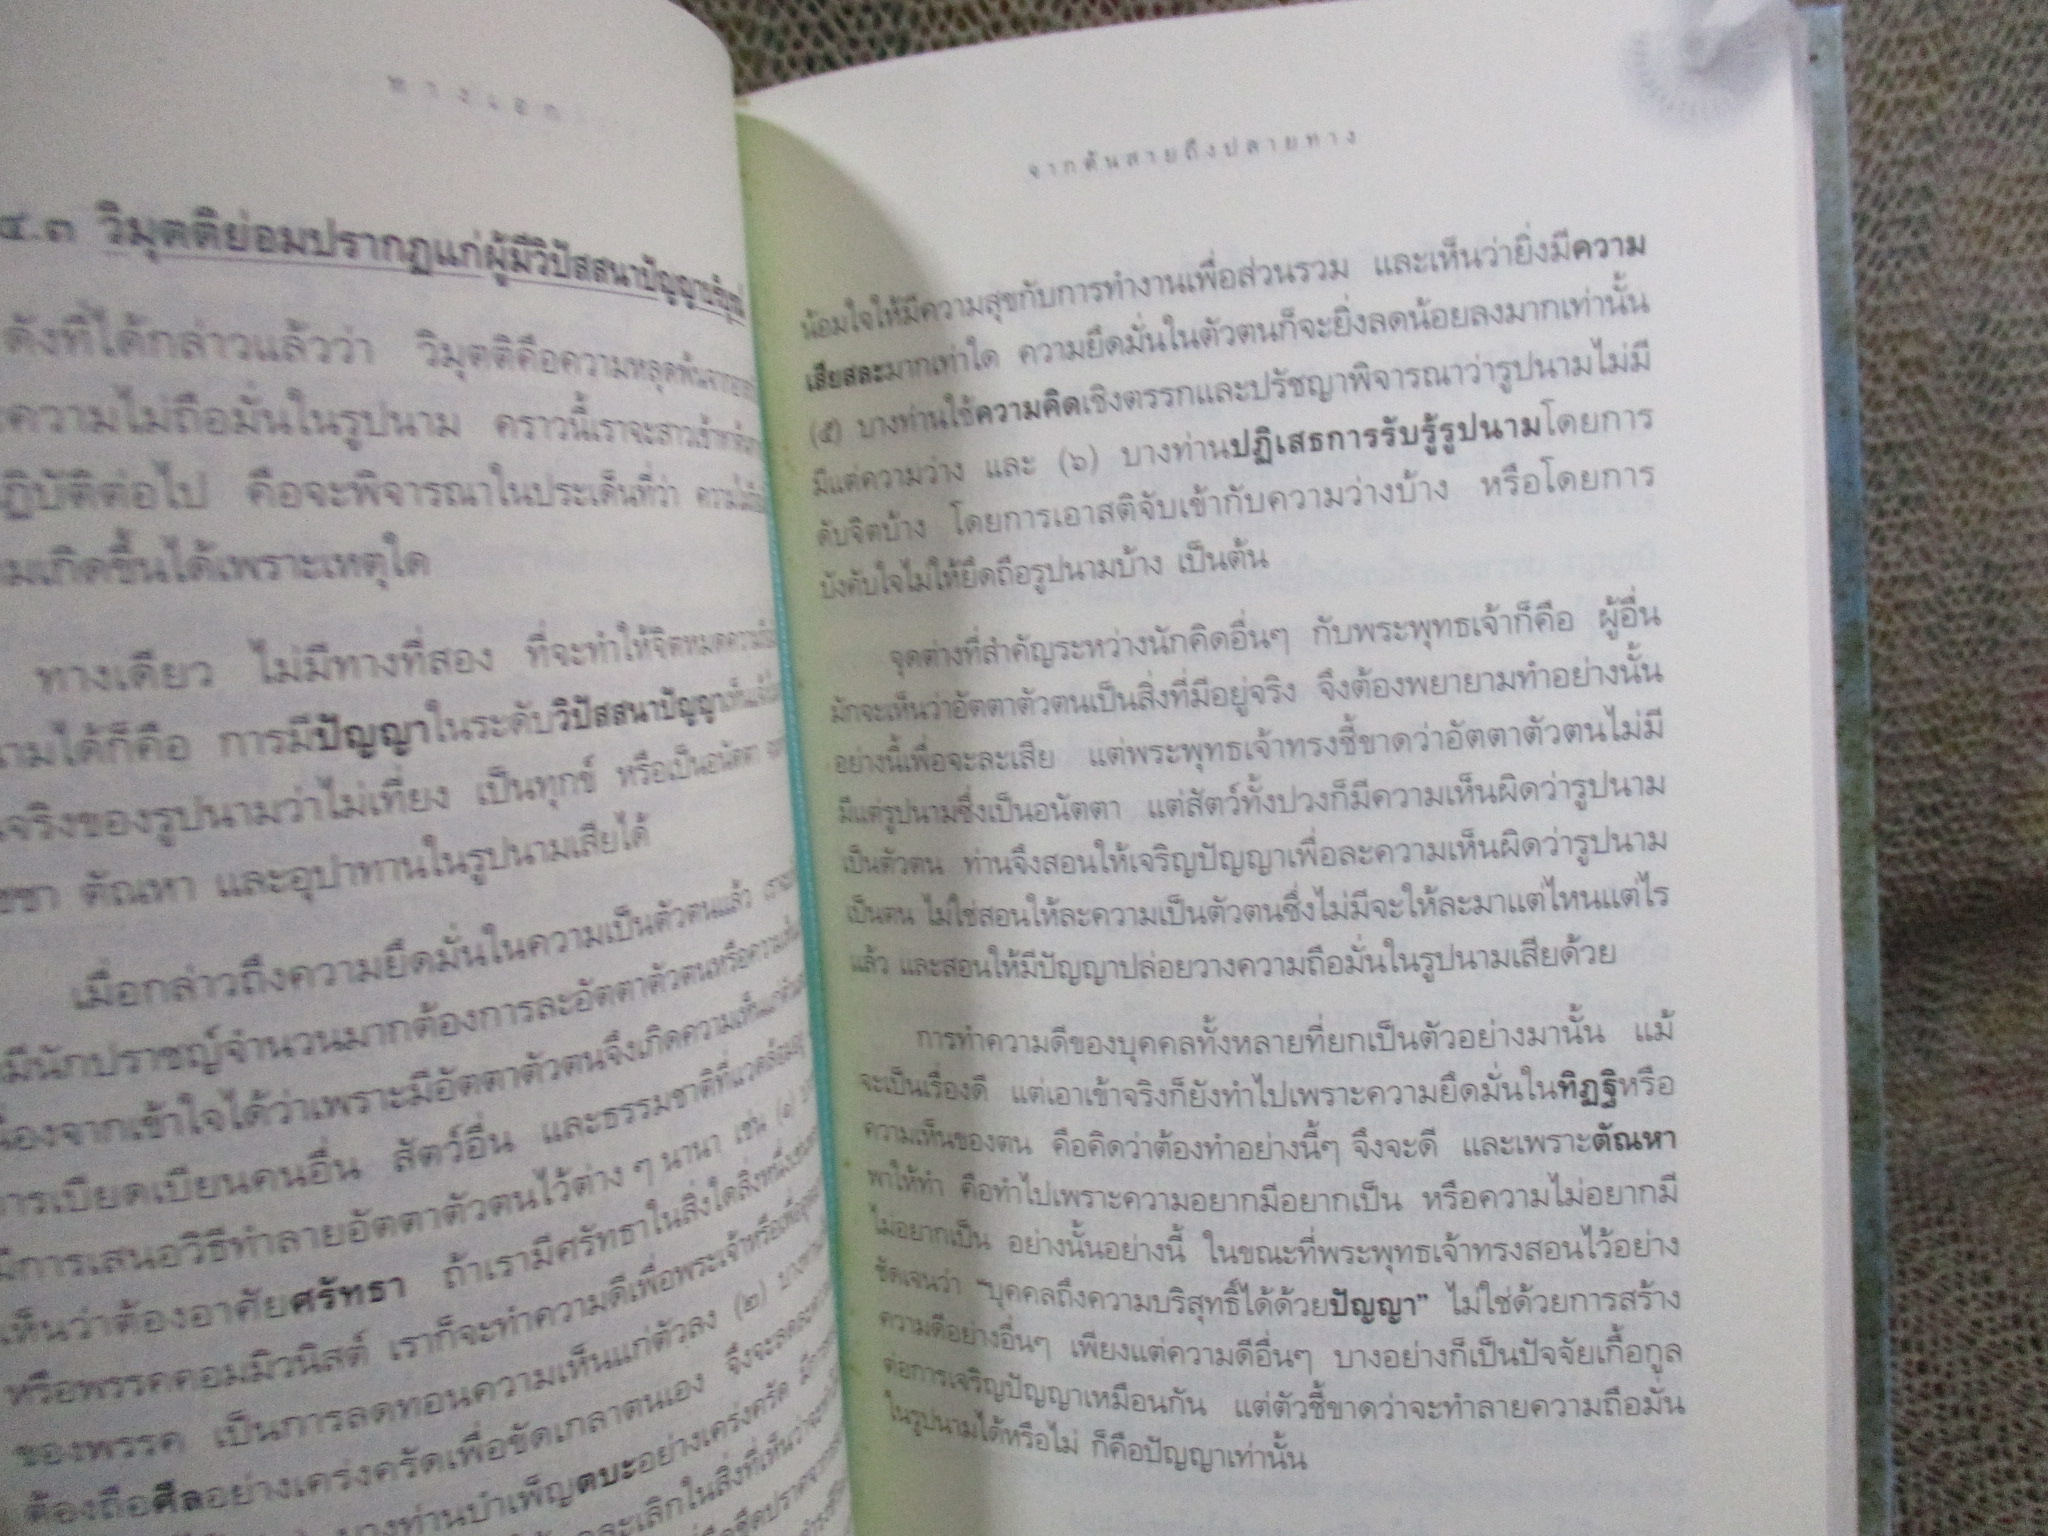 ทางเอก
๔.๓ วิมุตติย่อมปรากฏแก่ผู้มีวิปัสสนาปัญญาบริบูรณ์
ดังที่ได้กล่าวแล้วว่า วิมุตติคือความหลุดพ้น
ความไม่ถือมั่นในรูปนาม คราวนี้เราจะสาวเข้าหา
ฏิบัติต่อไป คือจะพิจารณาในประเด็นที่ว่า
มเกิดขึ้นได้เพราะเหตุใด
ทางเดียว ไม่มีทางที่สอง ที่จะทำให้จิตหมดความ
นามได้ก็คือ การมีปัญญาในระดับวิปัสสนาปัญญา
จริงของรูปนามว่าไม่เที่ยง เป็นทุกข์ หรือเป็นอนัตตา
ชชา ตัณหา และอุปาทานในรูปนามเสียได้
เมื่อกล่าวถึงความยึดมั่นในความเป็นตัวตนแล้ว
มีนักปราชญ์จำนวนมากต้องการละอัตตาตัวตนหรือความ
นื่องจากเข้าใจได้ว่าเพราะมีอัตตาตัวตนจึงเกิดความเห็นแก่ตัว
การเบียดเบียนคนอื่น สัตว์อื่น และธรรมชาติที่แวดล้อม
มีการเสนอวิธีทำลายอัตตาตัวตนไว้ต่างๆ นานา เช่น (๑)
เห็นว่าต้องอาศัยศรัทธา ถ้าเรามีศรัทธาในสิ่งใดสิ่งหนึ่ง
หรือพรรคคอมมิวนิสต์ เราก็จะทำความดีเพื่อพระเจ้าหรือเพื่อ
ของพรรค เป็นการลดทอนความเห็นแก่ตัวลง (๒) บางท่าน
ต้องถือศีลอย่างเคร่งครัดเพื่อขัดเกลาตนเอง จึงจะลดละ
บางท่านบำเพ็ญตบะอย่างเคร่งครัด
ละเลิกในสิ่งที่เห็นว่า
จากต้นสายถึงปลายทาง
น้อมใจให้มีความสุขกับการทำงานเพื่อส่วนรวม และเห็นว่ายิ่งมีความ
เสียสละมากเท่าใด ความยึดมั่นในตัวตนก็จะยิ่งลดน้อยลงมากเท่านั้น
(๕) บางท่านใช้ความคิดเชิงตรรกและปรัชญาพิจารณาว่ารูปนามไม่มี
มีแต่ความว่าง และ (๖) บางท่านปฏิเสธการรับรู้รูปนามโดยการ
ดับจิตบ้าง โดยการเอาสติจับเข้ากับความว่างบ้าง หรือโดยการ
บังคับใจไม่ให้ยึดถือรูปนามบ้าง เป็นต้น
จุดต่างที่สำคัญระหว่างนักคิดอื่นๆ กับพระพุทธเจ้าก็คือ ผู้อื่น
มักจะเห็นว่าอัตตาตัวตนเป็นสิ่งที่มีอยู่จริง จึงต้องพยายามทำอย่างนั้น
อย่างนี้เพื่อจะละเสีย แต่พระพุทธเจ้าทรงชี้ขาดว่าอัตตาตัวตนไม่มี
มีแต่รูปนามซึ่งเป็นอนัตตา แต่สัตว์ทั้งปวงก็มีความเห็นผิดว่ารูปนาม
เป็นตัวตน ท่านจึงสอนให้เจริญปัญญาเพื่อละความเห็นผิดว่ารูปนาม
เป็นตน ไม่ใช่สอนให้ละความเป็นตัวตนซึ่งไม่มีจะให้ละมาแต่ไหนแต่ไร
แล้ว และสอนให้มีปัญญาปล่อยวางความถือมั่นในรูปนามเสียด้วย
การทำความดีของบุคคลทั้งหลายที่ยกเป็นตัวอย่างมานั้น แม้
จะเป็นเรื่องดี แต่เอาเข้าจริงก็ยังทำไปเพราะความยึดมั่นในทิฏฐิหรือ
ความเห็นของตน คือคิดว่าต้องทำอย่างนี้ๆ จึงจะดี และเพราะตัณหา
พาให้ทำ คือทำไปเพราะความอยากมีอยากเป็น หรือความไม่อยากมี
ไม่อยากเป็น อย่างนั้นอย่างนี้ ในขณะที่พระพุทธเจ้าทรงสอนไว้อย่าง
ชัดเจนว่า "บุคคลถึงความบริสุทธิ์ได้ด้วยปัญญา" ไม่ใช่ด้วยการสร้าง
ความดีอย่างอื่นๆ เพียงแต่ความดีอื่นๆ บางอย่างก็เป็นปัจจัยเกื้อกูล
ต่อการเจริญปัญญาเหมือนกัน แต่ตัวชี้ขาดว่าจะทำลายความถือมั่น
ในรูปนามได้หรือไม่ ก็คือปัญญาเท่านั้น